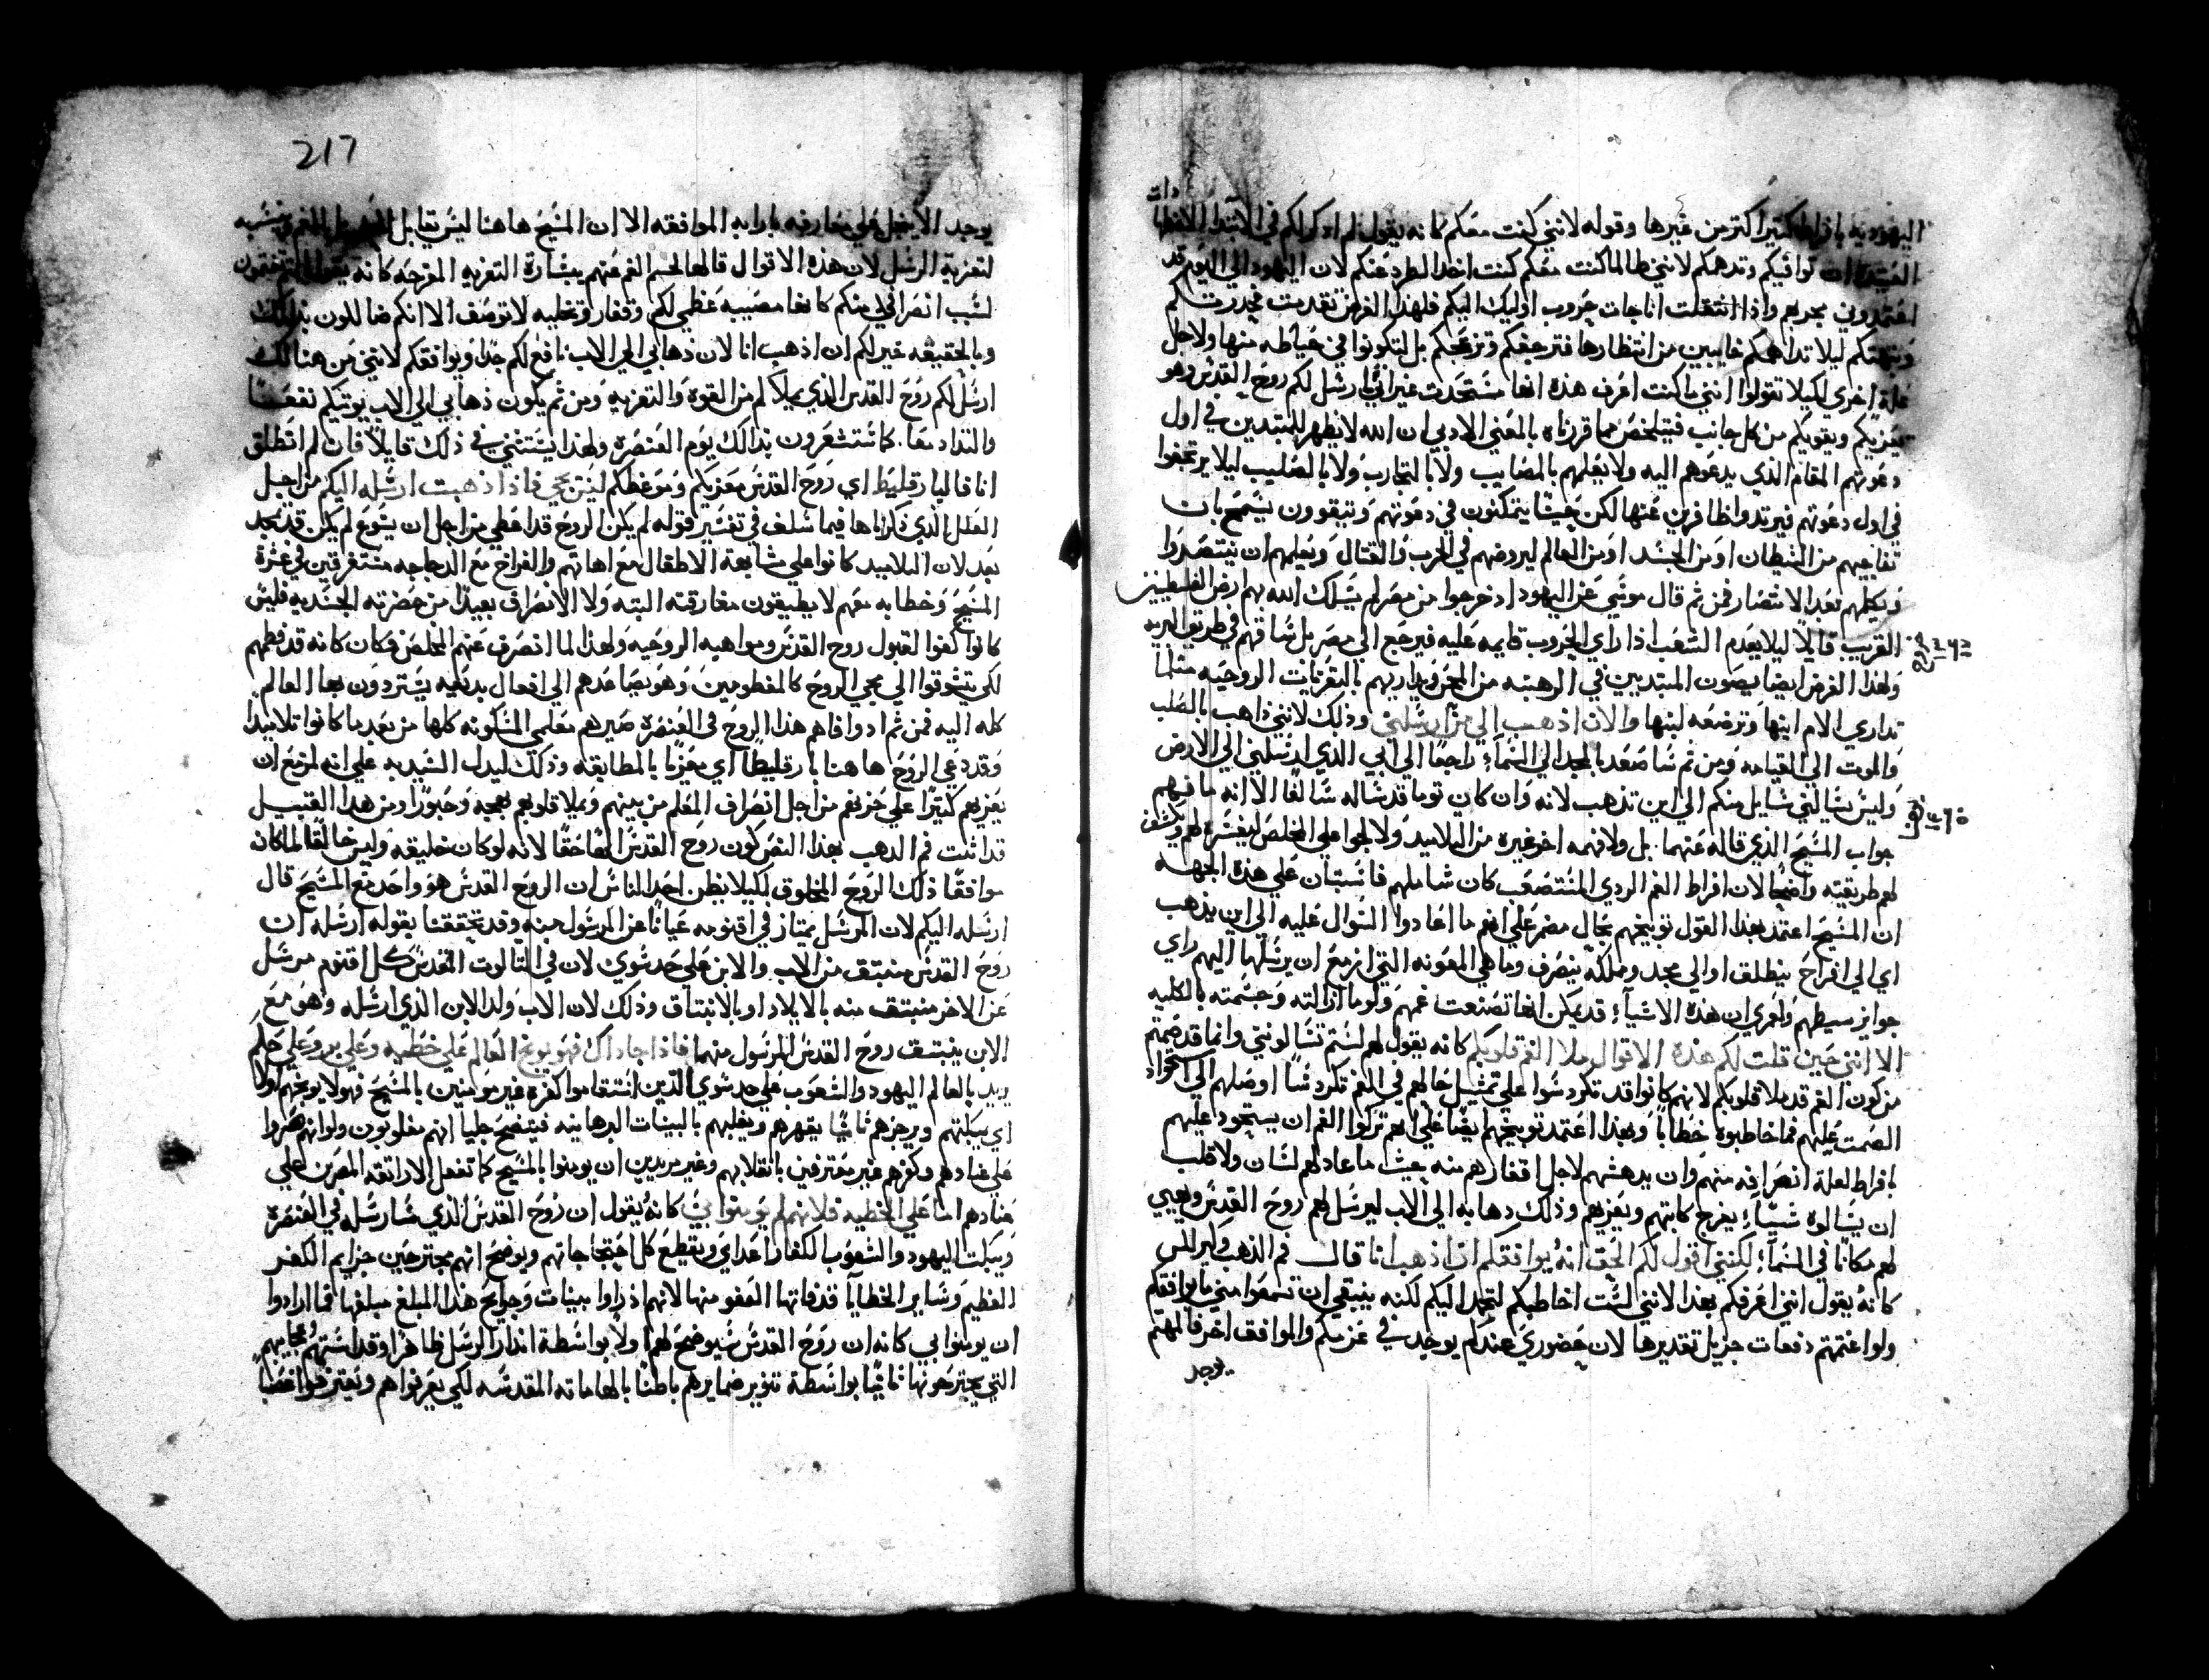 اليهوديه باقراط كتيرا اكتر من غيرها وقوله لانني كنت معكم كانه يقول لم اذكر لكم في الابتدا الاضطهادات
توافيكم وتدهمكم لانني طالما كنت معكم كنت اخد الطرد عنكم لان اليهود الي اليوم قد
اعتمدوني بحربهم واذا انتقلت انا جات حروب اوليك اليكم فلهذا الغرض تقدمت فحدرتكم
ونبهتكم ليلا تداهمكم خايبين من انتظارها فترجفكم وتزعجكم بل لتكونوا في حياطه منها ولاجل
علة اخري لكيلا تقولوا انني ما كنت اعرف هذه انها ستحدث غير اني ارسل لكم روح القدس وهو
يعزيكم ويقويكم من كل جانب فيتلخص مما قررناه بالمعني الادبي ان الله لا يظهر للمبتدين في اول
دعوتهم المقام الذي يدعوهم اليه ولا يعلمهم بالمصايب ولا بالتجارب ولا بالصليب ليلا يرتجفوا
في اول دعوتهم فيرتدوا ظافرين عنها لكن حينما يتمكنون في دعوتهم ويتقوون يسمح بان
تفاجيهم من الشيطان او من الجسد او من العالم ليروضهم في الحرب والقتال ويعلمهم ان ينتصروا
ويكللهم بعد الانتصار فمن ثم قال موسي عن اليهود اذ خرجوا من مصر لم يسلك الله بهم ارض الفلسطينيين
القريب قايلا ليلا يعدم الشعب اذا راي الحروب قايمه عليه فيرجع الي مصر بل ساقهم في طريق البريه
ولهذا الغرض ايضا يصون المبتديين في الرهبنه من المحن ويداريهم بالتعزيات الروحيه مثلما
تداري الام ابنها وترضعه لبنها والان اذهب الي من ارسلني وذلك لانني ذاهب بالصلب
والموت الي القيامه ومن ثم ساصعد بالمجد الي السماء راجعا الي ابي الذي ارسلني الي الارض
وليس يسالني سايل منكم الي اين تذهب لانه وان كان توما قد ساله سالفا الا انه ما فهم
جواب المسيح الذي قاله عنهما بل ولا فهمه اخر غيره من التلاميد ولا لجوا علي المخلص ليفسره لهم ويكشف
لهم طريقته واضحا لان افراط الغم الردي المستصعب كان شاملهم فاستبان علي هذه الجهه
ان المسيح اعتمد بهذا القول توبيخهم بحال مضمر علي انهم ما اعادوا السوال عليه الي اين يذهب
اي الي افراح ينطلق او الي مجد ومملكة ينصرف وما هي المعونه التي ازمع ان يرسلها اليهم راي
جوابر سيطهم ولعمري ان هذه الاشياء قد يمكن انها تصنعت غمهم ولو ما ازالته وحسمته بالكليه
الا انني حين قلت لكم هذه الاقوال ملا الغم قلوبكم كانه يقول لهم لستم تسالونني وانما قد صمتم
من كون الغم قد ملا قلوبكم لانهم كانوا قد تكردسوا علي تمثيل حالهم في الغم تكردسا اوصلهم الي استحواذ
الصمت عليهم فما خاطبوه خطابا وبهذا اعتمد توبيخهم ايضا علي انهم تركوا الغم ان يستحود عليهم
بافراط لعلة انصرافه منهم وان يدهشهم لاجل اقفارهم منه بحيث ما عاد لهم لسان ولا قلب
ان يسالوه شيياء يفرج كابتهم ويعزيهم وذلك دهابه الي الاب ليرسل لهم روح القدس ويهيي
لهم مكانا في السماء لكنني اقول لكم الحق انه يوافقكم ان اذهب انا قال فم الذهب وكيرللس
كانه يقول انني اعرفكم بهذا لانني لست اخاطبكم لتجدا اليكم لكنه ينبغي ان تسمعوا مني ما يوافقكم
ولو اغتممتم دفعات جزيل تقديرها لان حضوري عندكم يوجد في عزمكم والموافق اخر فالمهتم
يوجد
217
يوجد الا يبخل علي معارفه بارايه الموافقه الا ان المسيح هاهنا ليس يقابل
لتعزية الرسل لان هذه الاقوال قالها لحسم الغم عنهم ببشارة التعزيه المفرحه كانه يقول
لسبب انصرافي منكم كانها مصيبه عظمي لكم وقفار وتخليه لا توصف الا انكم ضاللون بذلك
وبالحقيقه خير لكم ان اذهب انا لان ذهابي الي الاب نافع لكم جدا ويوافقكم لانني من هنالك
ارسل لكم روح القدس الذي يملاكم من القوه والتعزيه ومن ثم يكون ذهابي الي الاب يوتيكم نفعا
والتداد معا كما ستشعرون بدالك يوم العنصره ولهذا يستثني في ذلك قايلا فان لم انطلق
انا فالبارقليط اي روح القدس معزيكم ومو عظكم ليس يجي فاذا ذهبت ارسله اليكم من اجل
العلل الذي ذكرناها فيما سلف في تفسير قوله لم يكن الروح قد اعطي من اجل ان يسوع لم يكن قد مجد
بعد لان التلاميد كانوا علي مشابهة الاطفال مع امهاتهم والفراخ مع الدجاجه مستغرقين في عشرة
المسيح وخطابه معهم لا يطيقون مفارقته البته ولا الانصراف بعيدا من حضرته الجسديه فليس
كانوا كفوا لقبول روح القدس ومواهبه الروحيه ولهذا لما انصرف عنهم المخلص فكان كانه قد فطمهم
لكي يتشوقوا الي مجي الروح كالمفطومين وهو يصاعدهم الي افعال بدنيه يستردون بها العالم
كله اليه فمن ثم اد وافاهم هذا الروح في العنصره صيرهم معلمي المسكونه كلها من بعد ما كانوا تلاميدا
وقد دعي الروح هاهنا بارقليطا اي معزيا بالمطابقه وذلك ليدل السيد به علي انه لمزمع ان
يعزيهم كتيرا علي حزنهم من اجل انصراف المعلم من بينهم ويملا قلوبهم بهجه وحبورا ومن هذا القبيل
قد اثبت فم الدهب بهذا النص كون روح القدس الها حقا لانه لو كان خليقه وليس خالقا لما كانه
موافقا ذلك الروح المخلوق لكيلا يظن احد الناس ان الروح القدس هو واحد مع المسيح قال
ارسله اليكم لان المرسل يمتاز في اقنومه عيانا عن المرسول منه وقد تحققنا بقوله ارسله ان
روح القدس منبتق من الاب والابن علي حد سوي لان في التالوت القدس كل اقنوم مرسل
عن الاخر منبتق منه بالايلاد او بالانبتاق وذلك لان الاب ولد الابن الذي ارسله وهو مع
الابن ينبتق روح القدس المرسول منهما فاذا جا داك فهو يوبخ العالم علي خطيه وعلي بر وعلي حكم
يريد بالعالم اليهود والشعوب علي حد سوي الذين استقاموا كفره غير مومنين بالمسيح فهولا يوبخهم اولا
اي يبكتهم ويرجزهم ثانيا يقهرهم ويغلبهم بالبينات البرهانيه فيتضح جليا انهم مغلوبون ولو انهم صروا
علي عنادهم وكفرهم غير معترفين بانقلابهم وغير مريدين ان يومنوا بالمسيح كما تفعل الاراتقه المصرين علي
عنادهم اما علي الخطيه فلانهم لم يومنوا بي كانه يقول ان روح القدس الذي سارسله في العنصره
ويبكت اليهود والشعوب الكفار اعداي ويقطع كل احتجاجاتهم ويوضح انهم مجترحين جزايم الكفر
العظيم وساير الخطايا قد فاتها العفو منها لانهم اذ راوا بينات وجرايح هذا المبلغ مبلغها فما ارادوا
ان يومنوا بي كانه ان روح القدس سيوضح لهم اولا بواسطة اندار الرسل ظاهرا وقداستهم وعجايبهم
التي يجترحونها ثانيا بواسطة تنوير ضمايرهم باطنا بالهاماته المقدسه لكي يعرفوا هم ويعترفوا ايضا